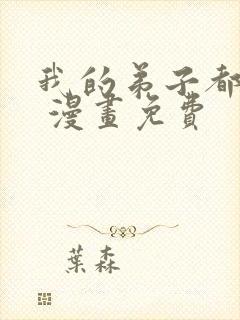 我的弟子都
漫畫免費
葉森